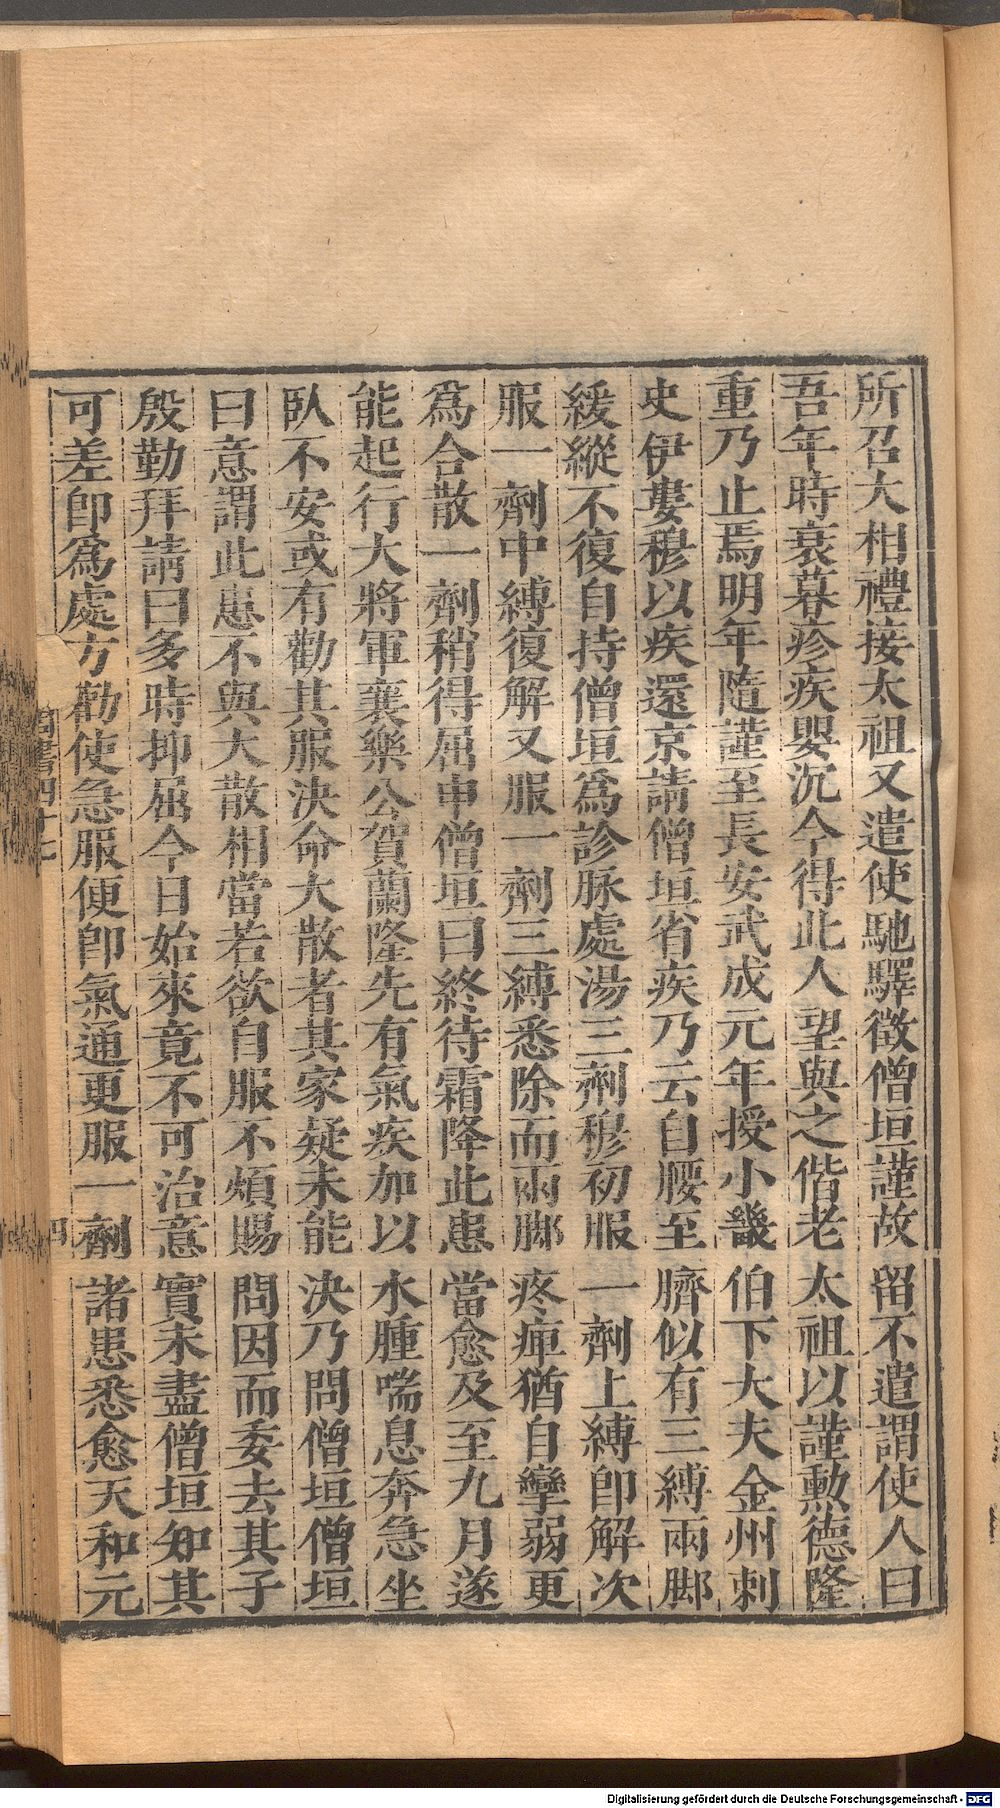 所召大相禮接太祖又遣使馳驛徵僧垣謹故留不遣謂使人曰
吾年時衰暮疹疾嬰沉今得此人望與之偕老太祖以謹勳德隆
重乃止焉明年隨謹至長安武成元年授小畿伯下大夫金州刺
史伊婁穆以疾還京請僧垣省疾乃云自腰至臍似有三縛兩脚
緩縱不復自持僧垣爲診脉處湯三劑穆初服一劑上縛卽解次
服一劑中縛復解又服一劑三縛悉除而兩脚疼痺猶自攣弱更
爲合散一劑稍得屈申僧垣曰終待霜降此患當愈及至九月遂
能起行大將軍襄樂公賀蘭隆先有氣疾加以水腫喘息奔急坐
臥不安或有勸其服決命大散者其家疑未能決乃問僧垣僧垣
曰意謂此患不與大散相當若欲自服不煩賜問因而委去其子
殷勤拜請曰多時抑屈今日始來竟不可治意實未盡僧垣知其
可差卽爲處方勸使急服便卽氣通更服一劑諸患悉愈天和元
周書四十七
四
Digitalisierung gefördert durch die Deutsche Forschungsgemeinschaft - DFG